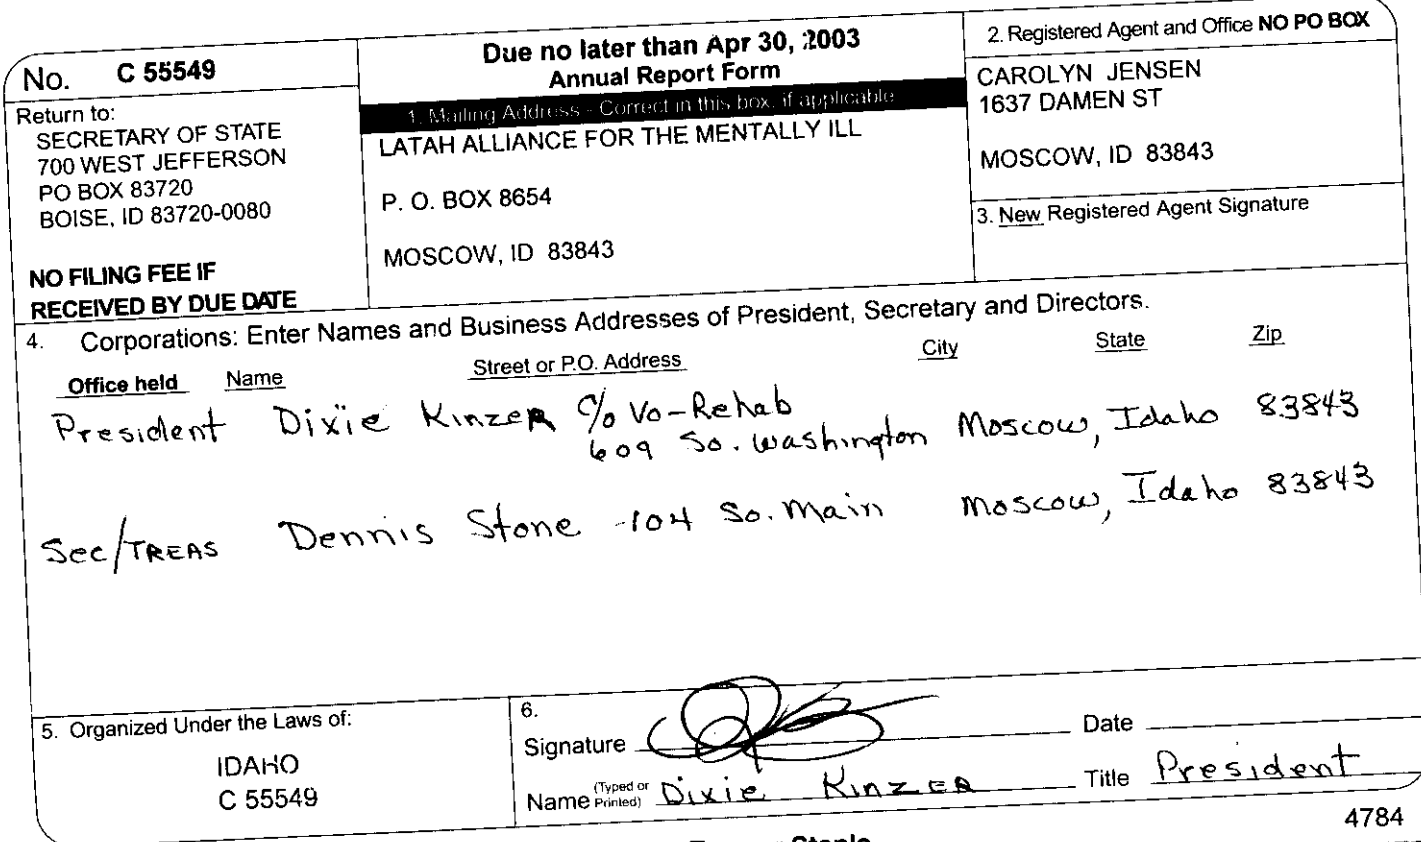 No. C 55549
Return to:
SECRETARY OF STATE
700 WEST JEFFERSON
PO BOX 83720
BOISE, ID 83720-0080
NO FILING FEE IF
RECEIVED BY DUE DATE
Due no later than Apr 30, 2003
Annual Report Form
1. Mailing Address - Correct in this box, if applicable
LATAH ALLIANCE FOR THE MENTALLY ILL
P. O. BOX 8654
MOSCOW, ID 83843
2. Registered Agent and Office NO PO BOX
CAROLYN JENSEN
1637 DAMEN ST
MOSCOW, ID 83843
3. New Registered Agent Signature
4. Corporations: Enter Names and Business Addresses of President, Secretary and Directors.
Office held Name Street or P.O. Address City State Zip
President Dixie Kinzer c/o Vo-Rehab
609 So. Washington Moscow, Idaho 83843
Sec/TREAS Dennis Stone -104 So. Main Moscow, Idaho 83843
5. Organized Under the Laws of:
IDAHO
C 55549
6.
Signature Date
Name (Typed or Printed) Dixie Kinzer Title President
4784